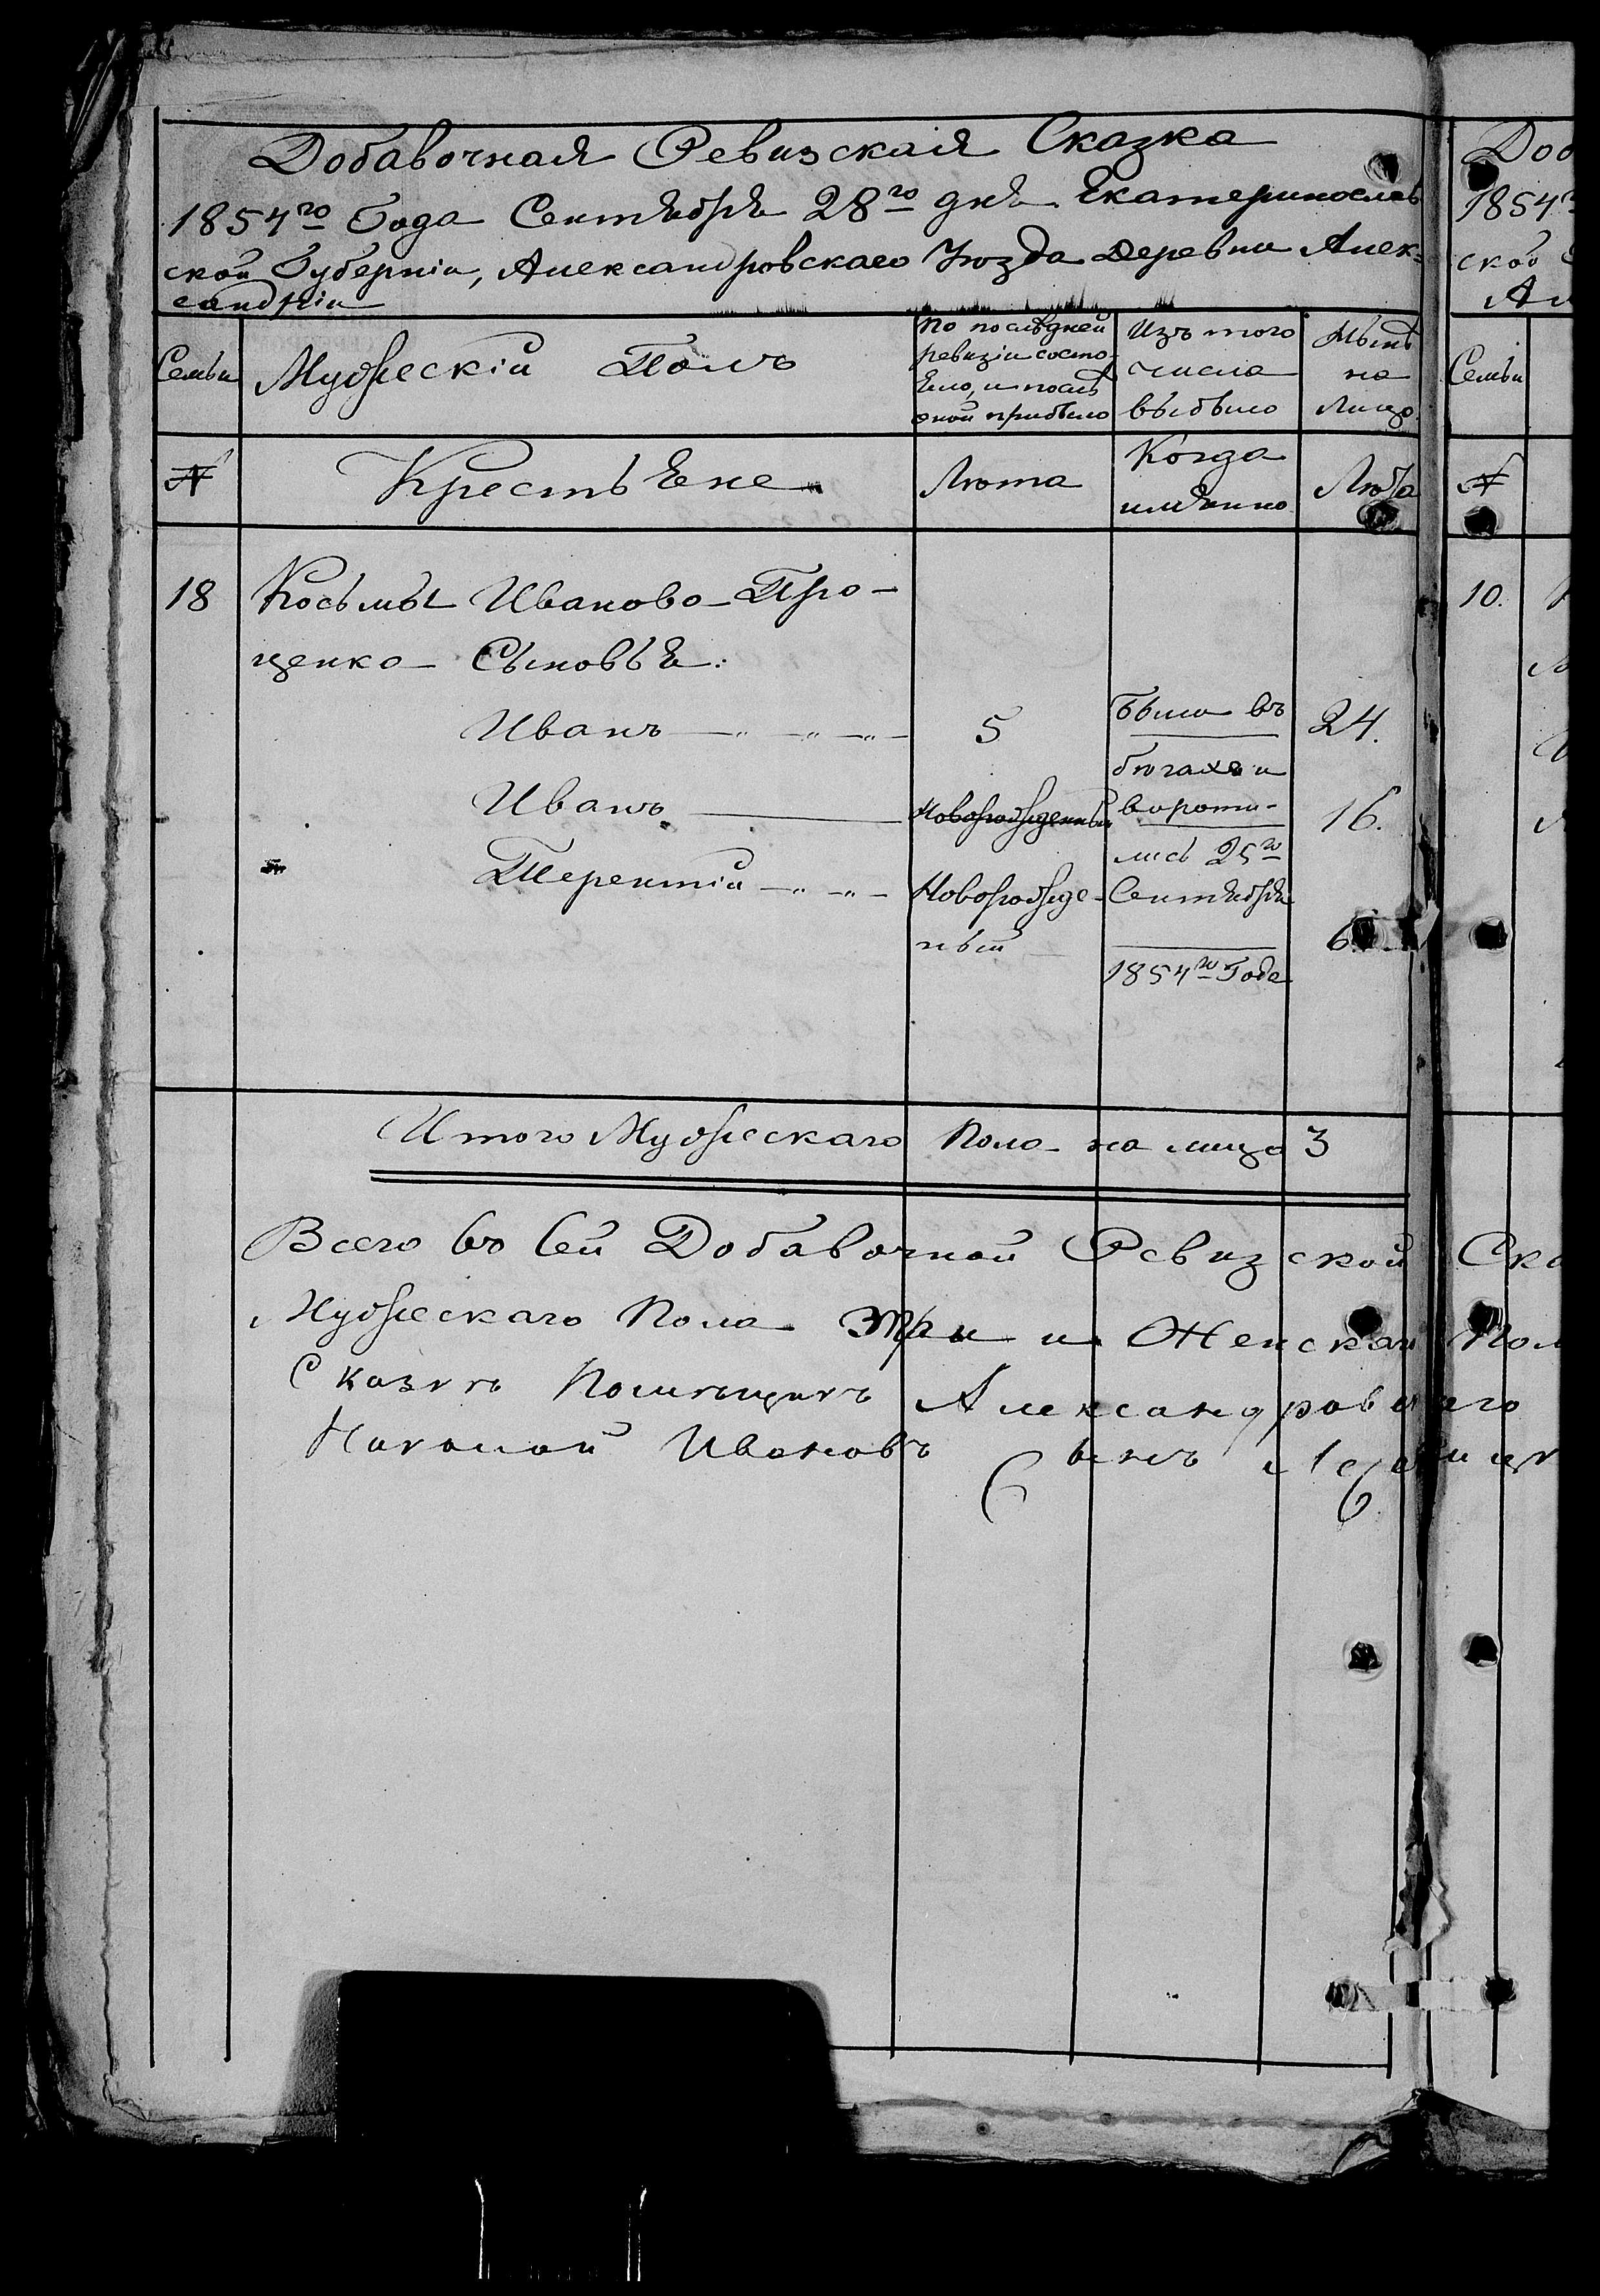 Добавочная Ревизская Сказка
1854го Года Сентября 28го дня Екатеринослав
ской Губерніи, Александровскаго Уѣзда Деревни Алек=
сандріи
Семьи
Мужескій Полъ
По послѣдней
ревизіи состо-
яло, и послѣ
оной прибыло
Изъ того
числа
выбыло
Нынѣ
на
Лицо.
№
Крестьяне
Лѣта
Когда
имянно
Лѣта
18
Косьмы Иванова Про-
ценка Сыновья:
Иванъ
5
Были въ
24.
бѣгахъ и
Иванъ
Новорожденный
вороти-
16.
лись 25го
Терентій
Новорожде-
Сентября
ный
6
1854го Года
Итого Мужескаго Пола на лицо 3
Всего въ сей Добавочной Ревизской Ска
Мужескаго Пола Три и Женскаго Пол
Сказкѣ Помѣщикъ Александровскаго
Николай Ивановъ Сынъ
Доб
1854го
ской
Ал
Семьи
№
10.